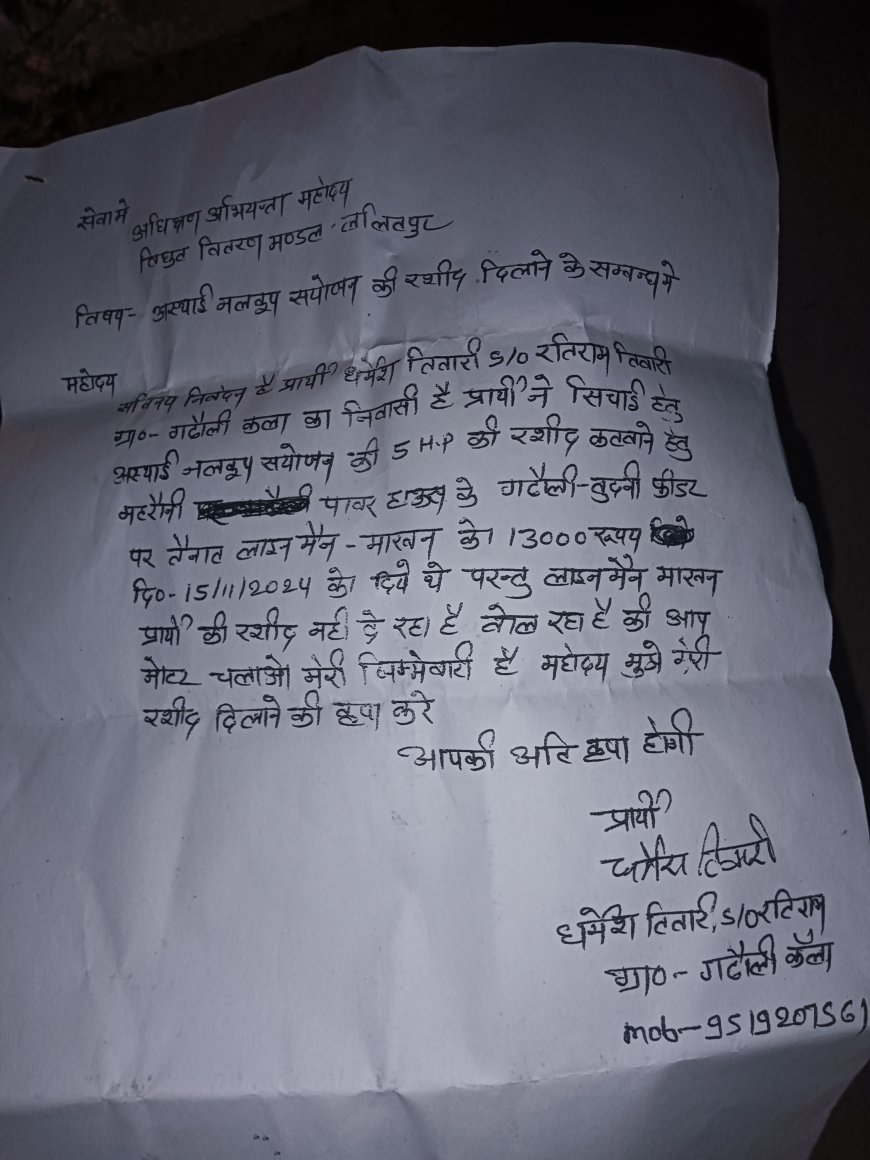 सेवामे
अधिक्षण अभियन्ता महोदय
विधुत वितरण मण्डल ललितपुर
विषय- अस्थाई नलकूप सयोजन की रशीद दिलाने के सम्बन्ध मे
महोदय
सविनय निवेदन है प्रार्थी धर्मेश तिवारी S/O रतिराम तिवारी
ग्रा०- गढौली कला का निवासी है प्रार्थी ने सिचाई हेतु
अस्थाई नलकूप सयोजन की 5 H.P की रशीद कटवाने हेतु
महरौनी पावर हाऊस के गढौली-बुदनी फीडर
पर तैनात लाइन मैन - माखन को 13000 रूपय
दि०- 15/11/2024 को दिये थे परन्तु लाइन मैन माखन
प्रार्थी की रशीद नही दे रहा है बोल रहा है की आप
मोटर चलाओ मेरी जिम्मेवारी है महोदय मुझे मेरी
रशीद दिलाने की कृपा करे
आपकी अति कृपा होगी
प्रार्थी
धर्मेश तिवारी
धर्मेश तिवारी, S/O रतिराम
ग्रा०- गढौली कॅला
mob- 9519207561